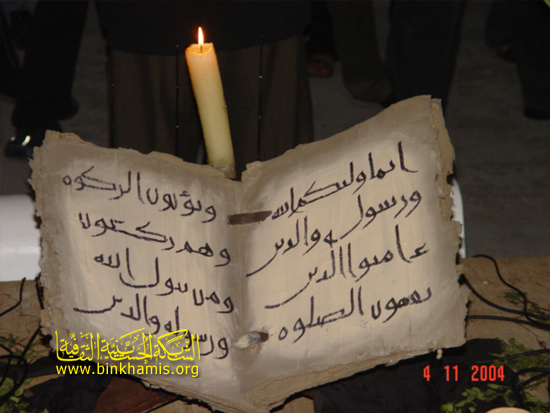 انما وليكم الله
ورسوله والذين
ءامنوا الذين
يقيمون الصلوة
ويؤتون الزكوة
وهم ركعون
ومن يتول الله
ورسوله والذين
الشبكة الحسينية
www.binkhamis.org
4 11 2004